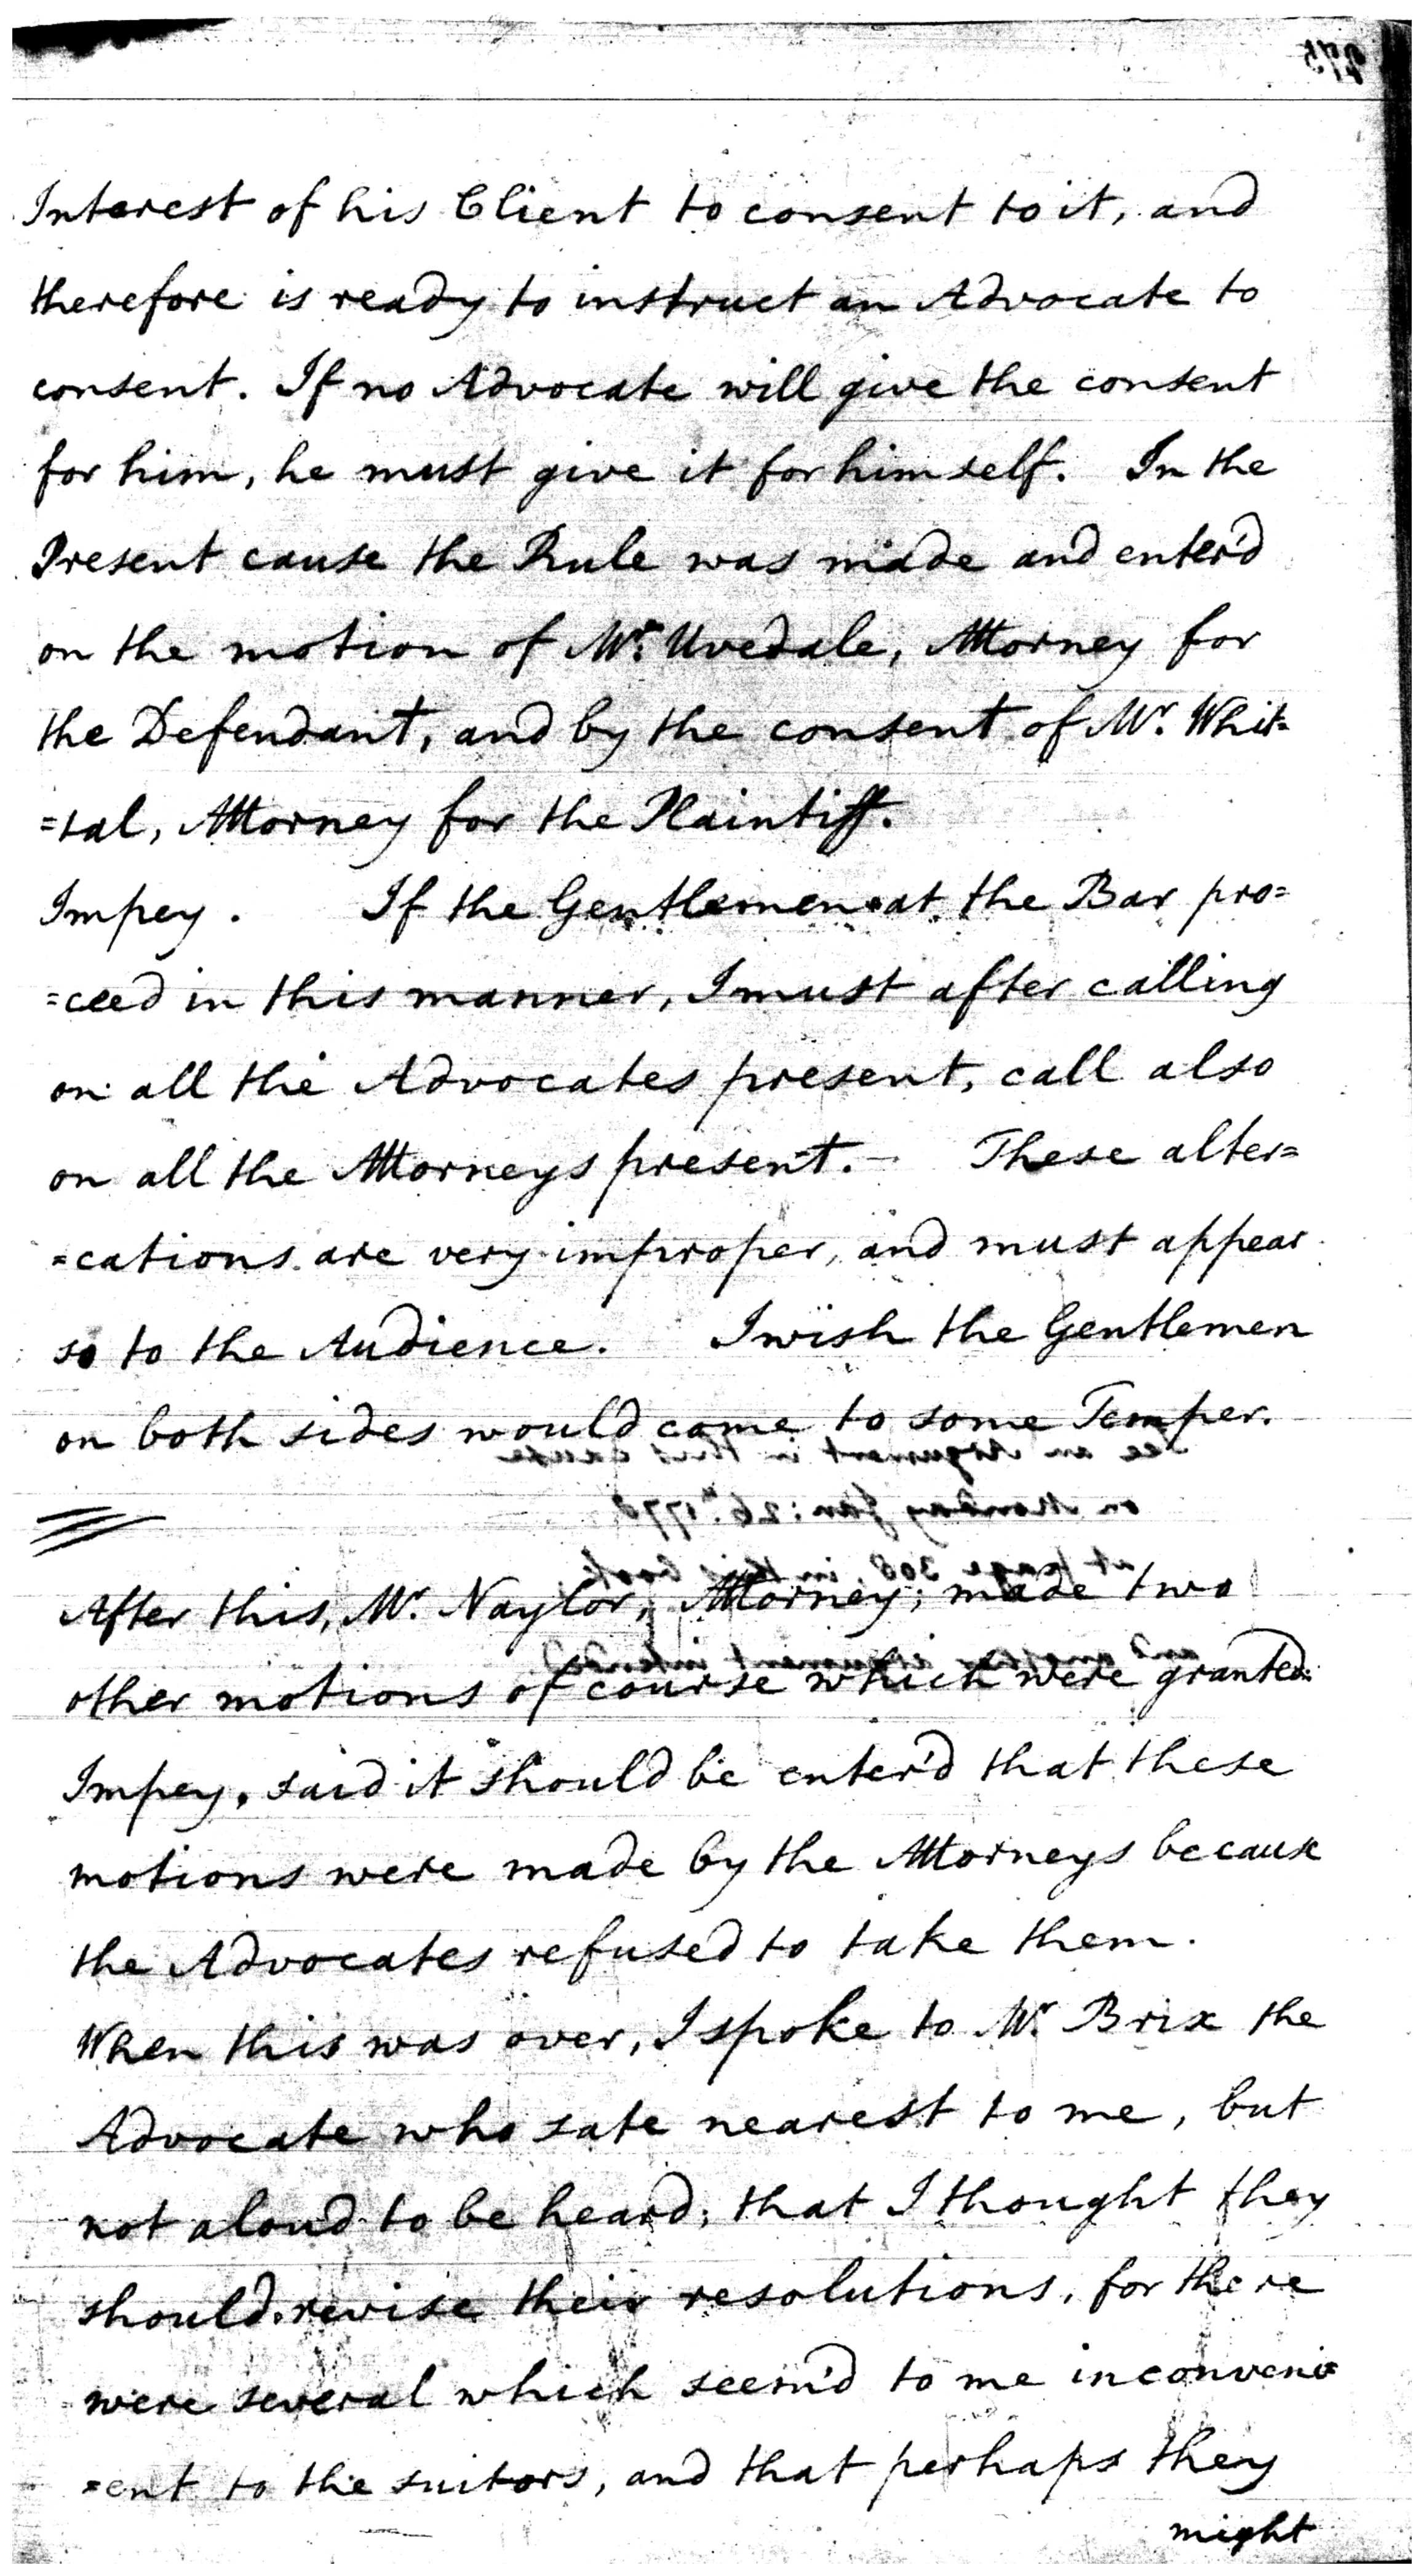 Interest of his Client to consent to it, and
therefore is ready to instruct an Advocate to
consent. If no Advocate will give the consent
for him, he must give it for himself. In the
Present cause the Rule was made and enter'd
on the motion of Mr. Uvedale, Attorney for
the Defendant, and by the consent of Mr. Whit=
=tal, Attorney for the Plaintiff.
Impey. If the Gentlemen at the Bar pro=
=ceed in this manner, I must after calling
on all the Advocates present, call also
on all the Attorneys present. These alter=
=cations are very improper, and must appear
so to the Audience. I wish the Gentlemen
on both sides would come to some Temper.
See an Argument in this cause
on Monday Jan: 26th 1778
at page 308 in this book
After this, Mr. Naylor, Attorney, made two
and another argument intended
other motions of course which were granted.
Impey, said it should be enter'd that these
motions were made by the Attorneys because
the Advocates refused to take them.
When this was over, I spoke to Mr. Brix the
Advocate who sate nearest to me, but
not aloud to be heard, that I thought they
should revise their resolutions, for there
were several which seem'd to me inconveni=
=ent to the suitors, and that perhaps they
might